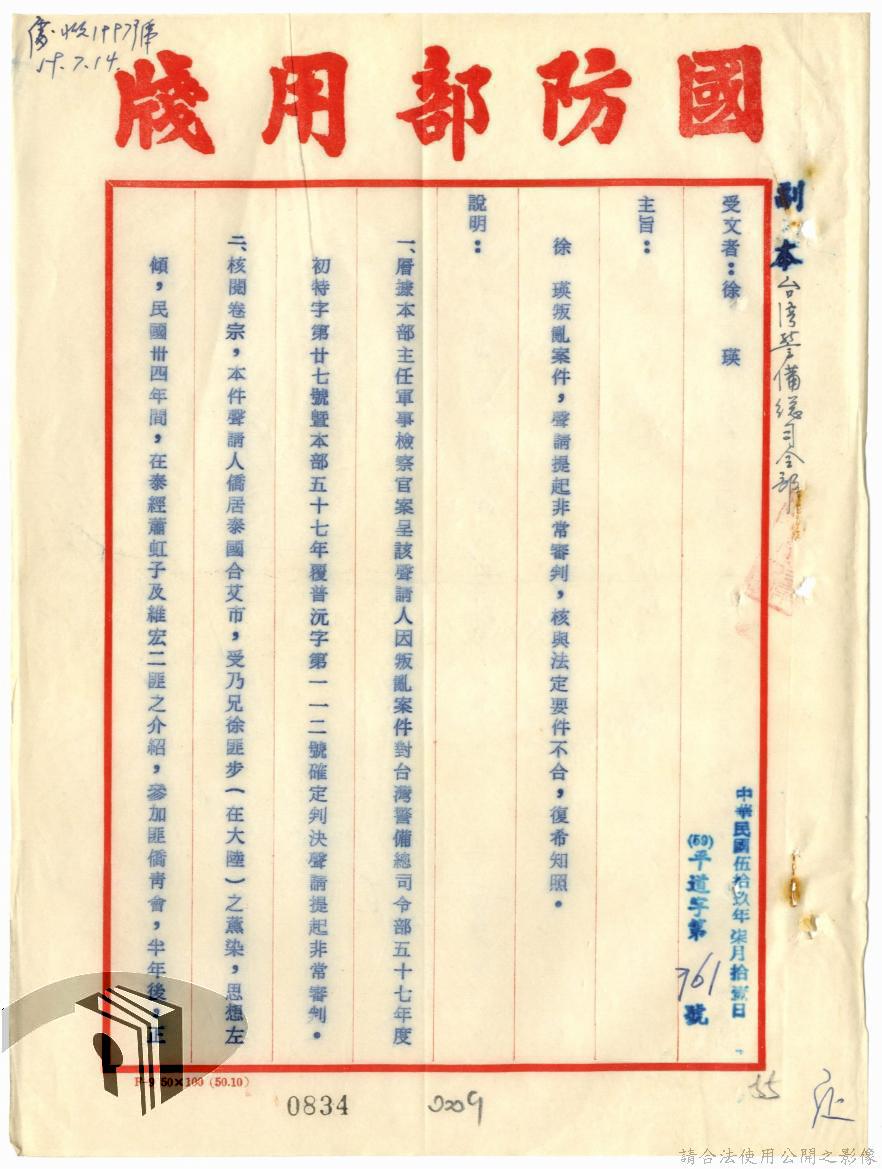 國防部用牋
59.7.14.
副本
台灣警備總司令部
受文者：徐　瑛
中華民國伍拾玖年柒月拾壹日
(59)平道字第761號
主旨：
徐　瑛叛亂案件，聲請提起非常審判，核與法定要件不合，復希知照。
說明：
一、層據本部主任軍事檢察官案呈該聲請人因叛亂案件對台灣警備總司令部五十七年度
初特字第廿七號暨本部五十七年覆普沅字第一一二號確定判決聲請提起非常審判。
二、核閱卷宗，本件聲請人僑居泰國合艾市，受乃兄徐匪步（在大陸）之薰染，思想左
傾，民國卅四年間，在泰經蕭虹子及維宏二匪之介紹，參加匪僑青會，半年後，正
F-9 50×100 (50.10)
0834
2009
55
請合法使用公開之影像